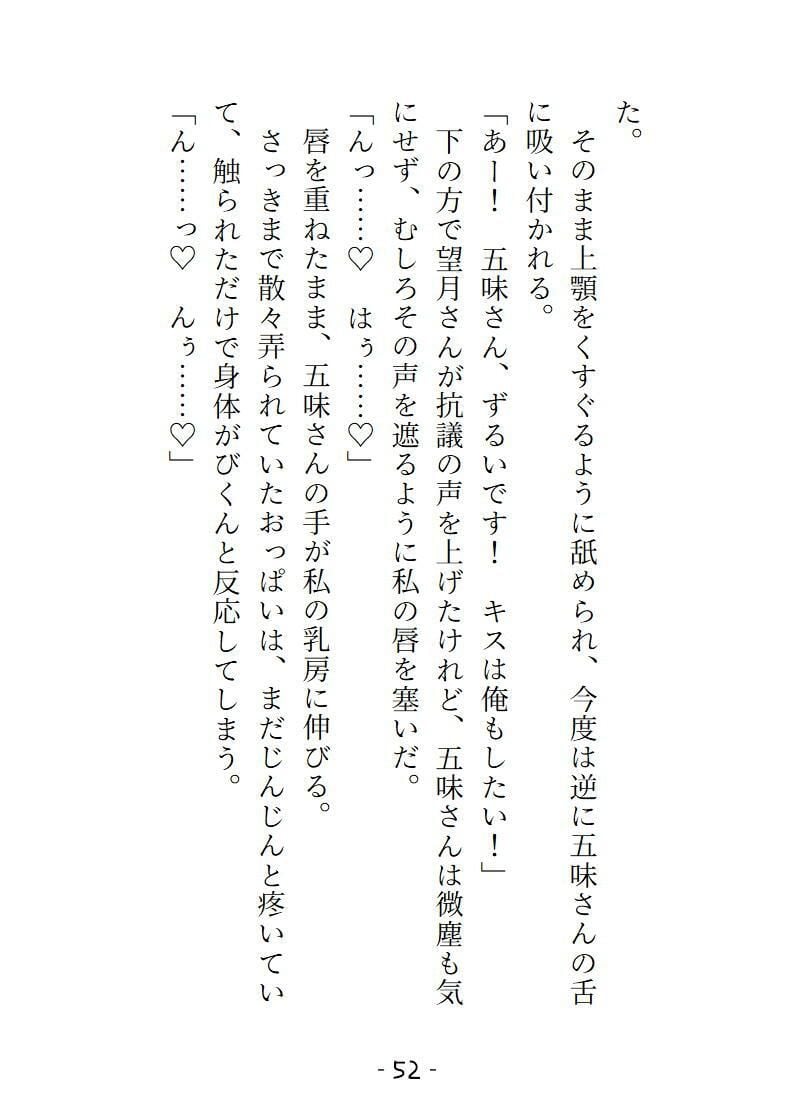 た。
　そのまま上顎をくすぐるように舐められ、今度は逆に五味さんの舌
に吸い付かれる。
「あー！　五味さん、ずるいです！　キスは俺もしたい！」
　下の方で望月さんが抗議の声を上げたけれど、五味さんは微塵も気
にせず、むしろその声を遮るように私の唇を塞いだ。
「んっ……♡　はぅ……♡」
　唇を重ねたまま、五味さんの手が私の乳房に伸びる。
　さっきまで散々弄られていたおっぱいは、まだじんじんと疼いてい
て、触られただけで身体がびくんと反応してしまう。
「ん……っ♡　んぅ……♡」
- 52 -